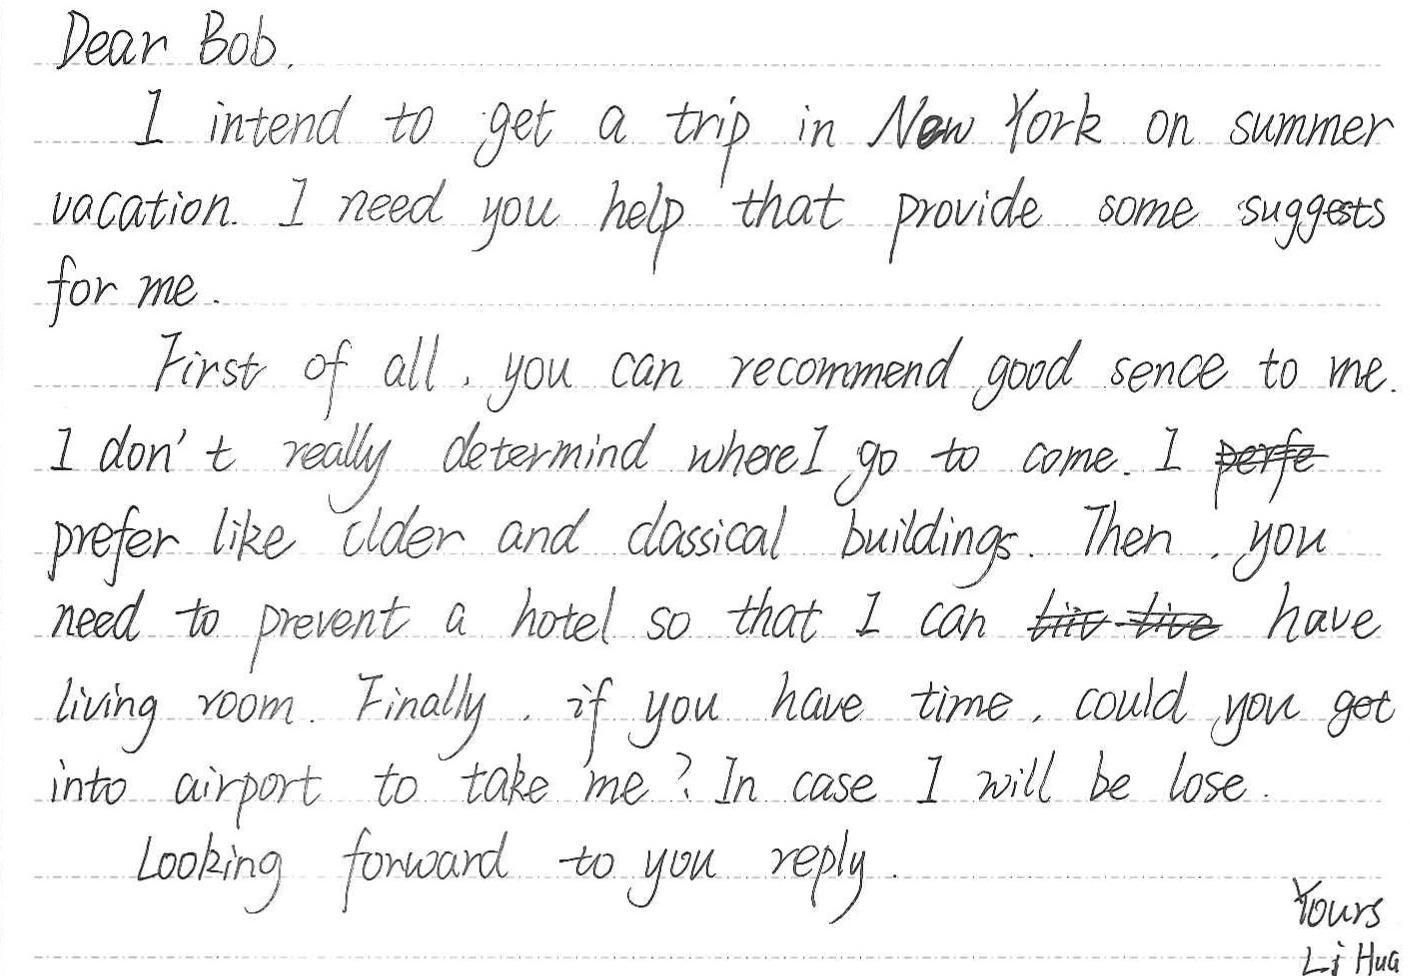 Dear Bob,
I intend to get a trip in New York on summer
vacation. I need you help that provide some suggests
for me.
First of all, you can recommend good sence to me.
I don't really determind where I go to come. I perfe
prefer like older and classical buildings. Then, you
need to prevent a hotel so that I can have
living room. Finally, if you have time, could you got
into airport to take me? In case I will be lose.
Looking forward to you reply.
Yours
Li Hua